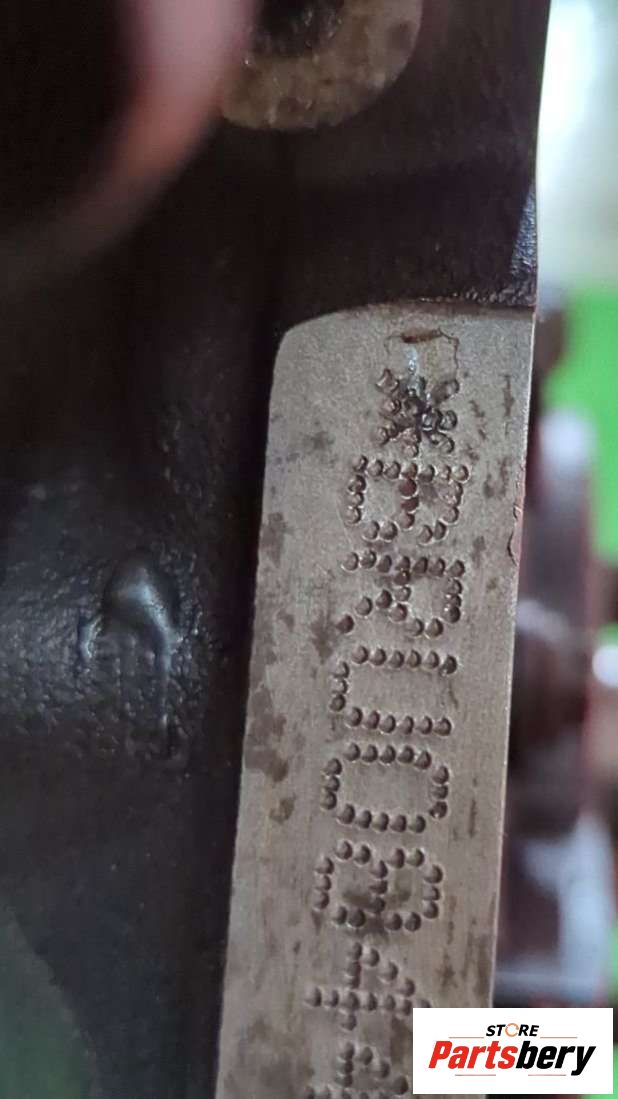 *BRU084
STORE
Partsbery